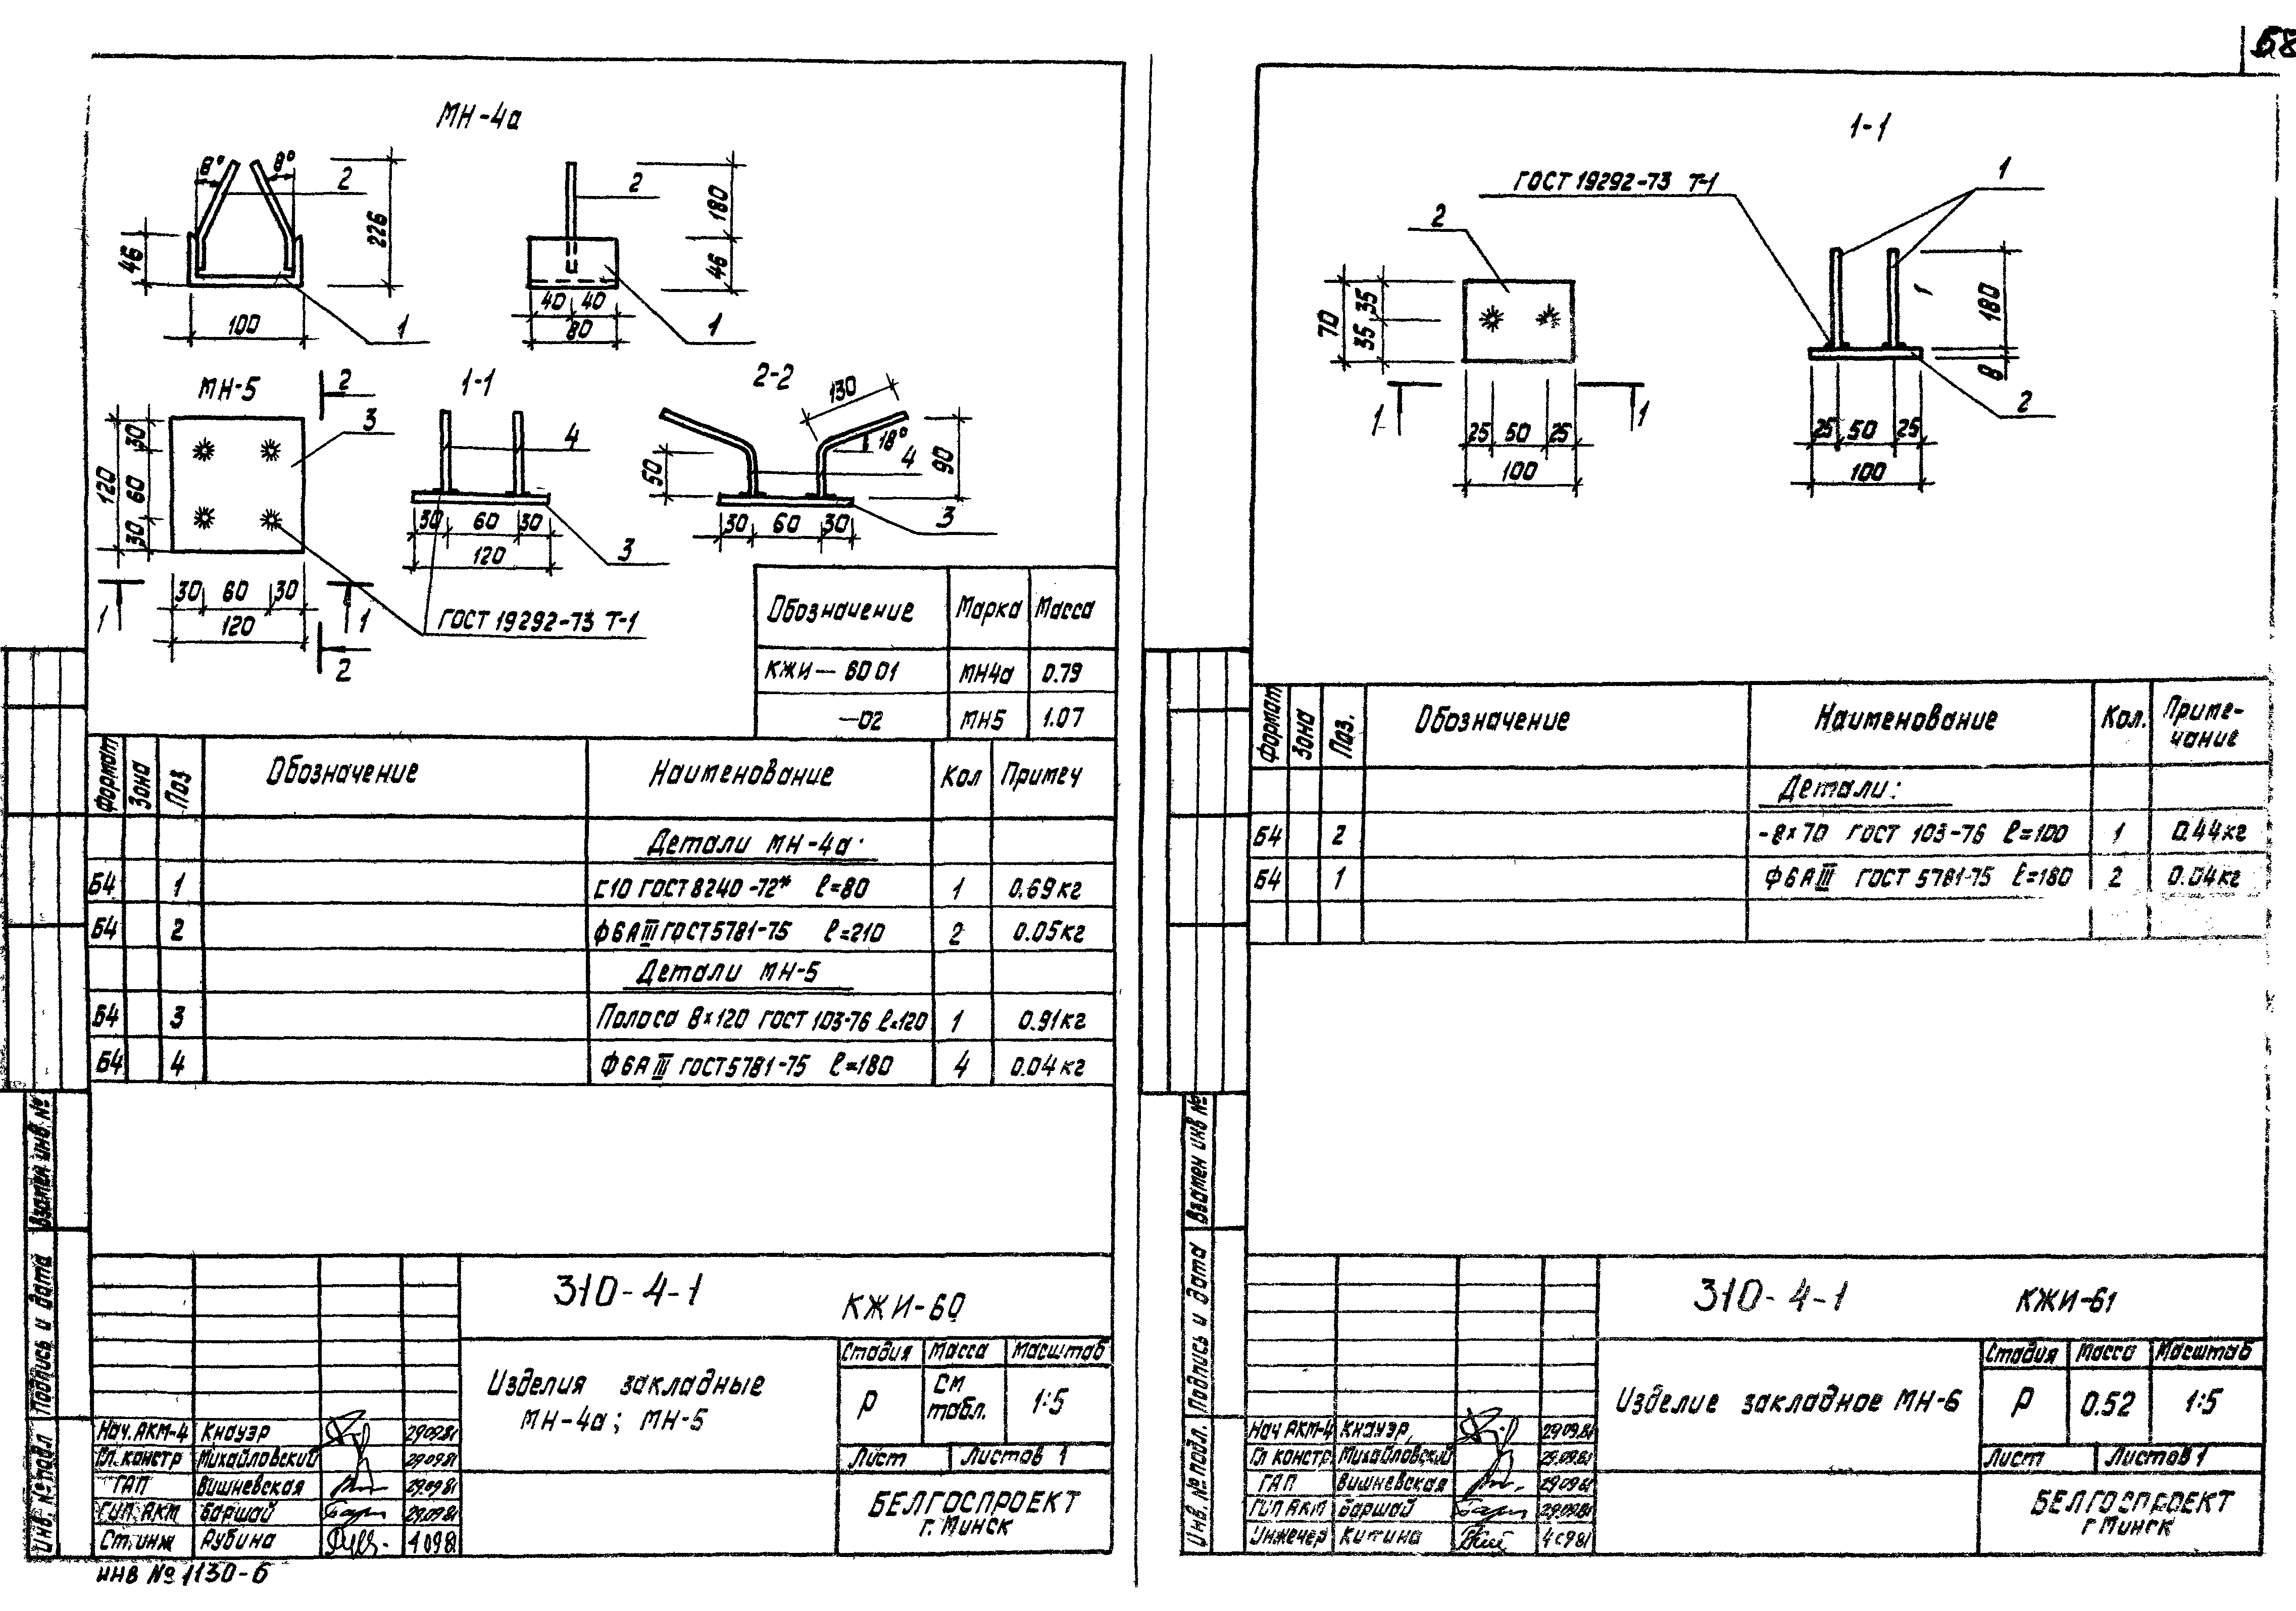 58
МН-4а
8° 8° 2
226
46
100
1
2
180
46
40 40
80
1
МН-5
2
3
30
60
30
120
30 60 30
120
1 1
2
1-1
4
30 60 30
120
3
ГОСТ 19292-73 Т-1
2-2
130
18°
4
50
90
30 60 30
3
Обозначение Марка Масса
КЖИ — 60 01 МН4а 0.79
—02 МН5 1.07
Формат Зона Поз Обозначение Наименование Кол Примеч
Детали МН-4а
Б4 1 С10 ГОСТ 8240-72* ℓ=80 1 0.69кг
Б4 2 Ф6АIII ГОСТ 5781-75 ℓ=210 2 0.05кг
Детали МН-5
Б4 3 Полоса 8×120 ГОСТ 103-76 ℓ=120 1 0.91кг
Б4 4 Ф6АIII ГОСТ 5781-75 ℓ=180 4 0.04кг
Взамен инв. №
Подпись и дата
Инв. № подл
310-4-1 КЖИ-60
Изделия закладные
МН-4а; МН-5
Стадия Масса Масштаб
Р См табл. 1:5
Лист Листов 1
БЕЛГОСПРОЕКТ
г. Минск
Нач. АКМ-4 Кнауэр 290981
Гл. констр Михайловский 290981
ГАП Вишневская 29.0981
ГИП АКМ Баршай 29.0981
Ст. инж Рубина 4 0981
инв № 1130-6
1-1
ГОСТ 19292-73 Т-1
1
2
70
35
35
1 1
25 50 25
100
180
8
2
25 50 25
100
Формат Зона Поз. Обозначение Наименование Кол. Приме-
чание
Детали:
Б4 2 -8×70 ГОСТ 103-76 ℓ=100 1 0.44кг
Б4 1 Ф6АIII ГОСТ 5781-75 ℓ=180 2 0.04кг
Взамен инв №
Подпись и дата
Инв. № подл.
310-4-1 КЖИ-61
Изделие закладное МН-6
Стадия Масса Масштаб
Р 0.52 1:5
Лист Листов 1
БЕЛГОСПРОЕКТ
г Минск
Нач АКМ-4 Кнауэр, 29.09.81
Гл констр Михайловский 29.09.81
ГАП Вишневская 290981
ГИП АКМ Баршай 29.09.81
Инженер